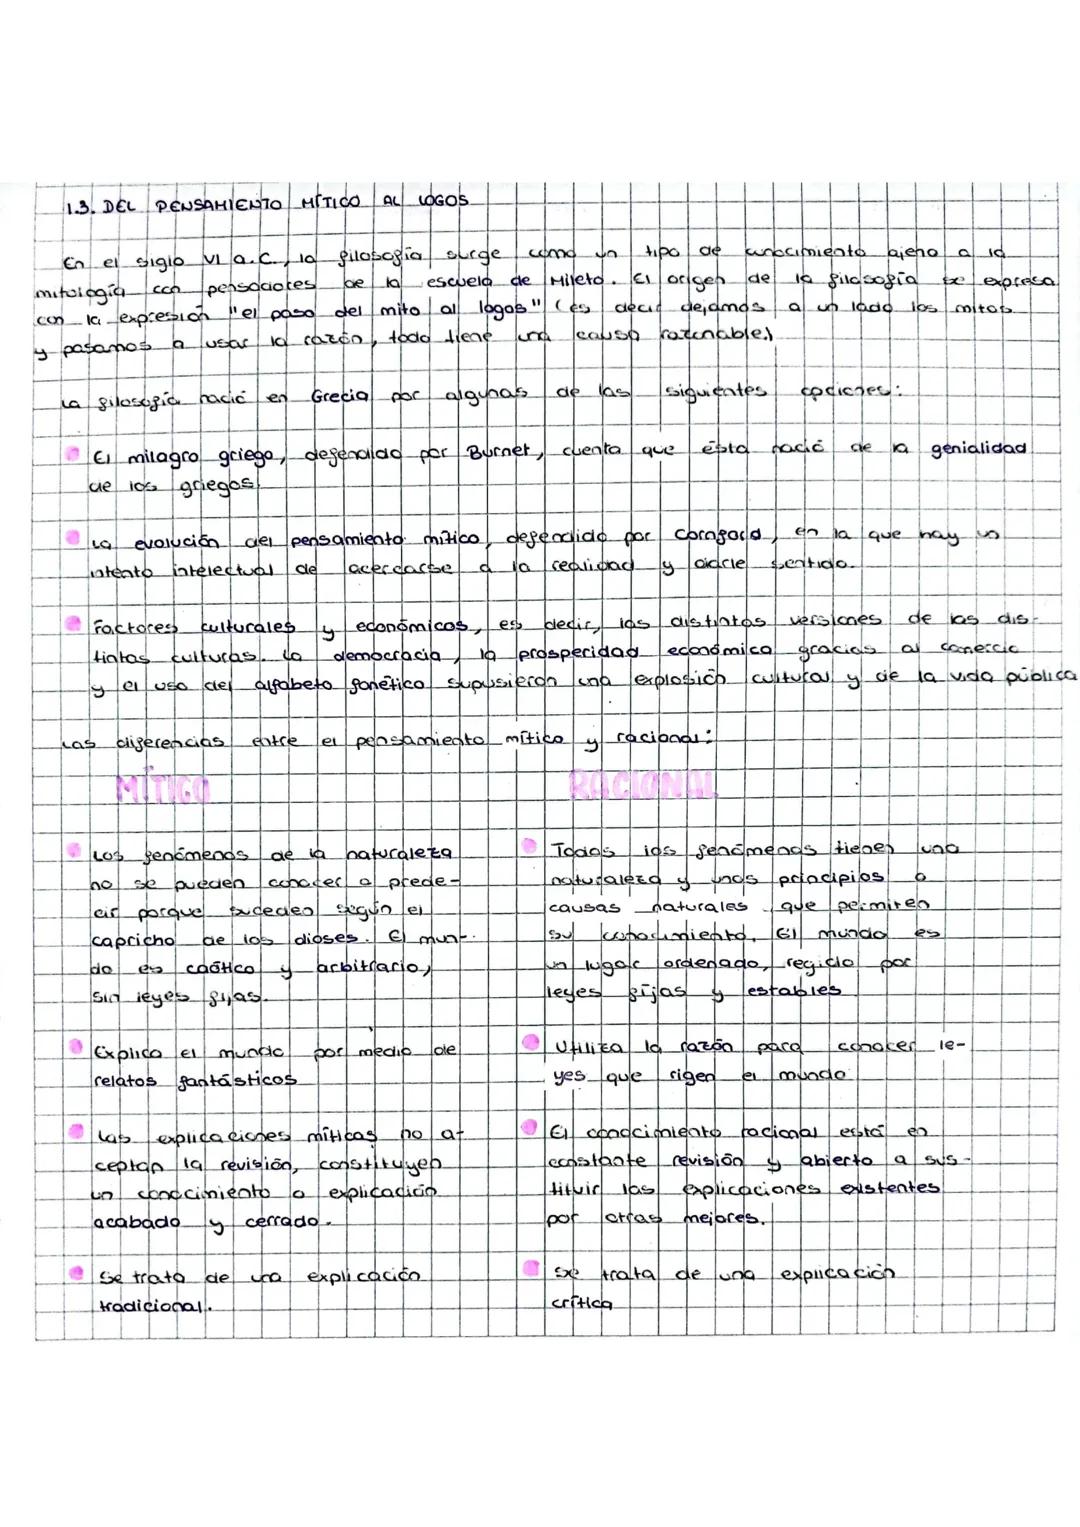 1.3. DEL PENSAMIENTO MÍTICO AL LOGOS
En el siglo VI a.C., la filosofía surge como un tipo de conocimiento ajeno a la
mitología con pensadores de la escuela de Mileto. El origen de la filosofía se expresa
con la expresión "el paso del mito al logos" (es decir dejamos a un lado los mitos
y pasamos a usar la razón, todo tiene una causa razonable.)
La filosofía nació en Grecia por algunas de las siguientes opciones:
El milagro griego, defendido por Burnet, cuenta que ésta nació de la genialidad
de los griegos.
La evolución del pensamiento mítico, defendido por Cornford, en la que hay un
intento intelectual de acercarse a la realidad y darle sentido.
Factores culturales y económicos, es decir, las distintas versiones de las dis-
tintas culturas. La democracia, la prosperidad económica gracias al comercio
y el uso del alfabeto fonético supusieron una explosión cultural y de la vida pública
Las diferencias entre el pensamiento mítico y racional:
MÍTICO RACIONAL
Los fenómenos de la naturaleza
no se pueden conocer o prede-
cir porque suceden según el
capricho de los dioses. El mun-
do es caótico y arbitrario,
sin leyes fijas.
Explica el mundo por medio de
relatos fantásticos
Las explicaciones míticas no a-
ceptan la revisión, constituyen
un conocimiento o explicación
acabado y cerrado.
Se trata de una explicación
tradicional.
Todos los fenómenos tienen una
naturaleza y unos principios o
causas naturales que permiten
su conocimiento. El mundo es
un lugar ordenado, regido por
leyes fijas y estables
Utiliza la razón para conocer le-
yes que rigen el mundo
El conocimiento racional está en
constante revisión y abierto a sus-
tituir las explicaciones existentes
por otras mejores.
Se trata de una explicación
crítica